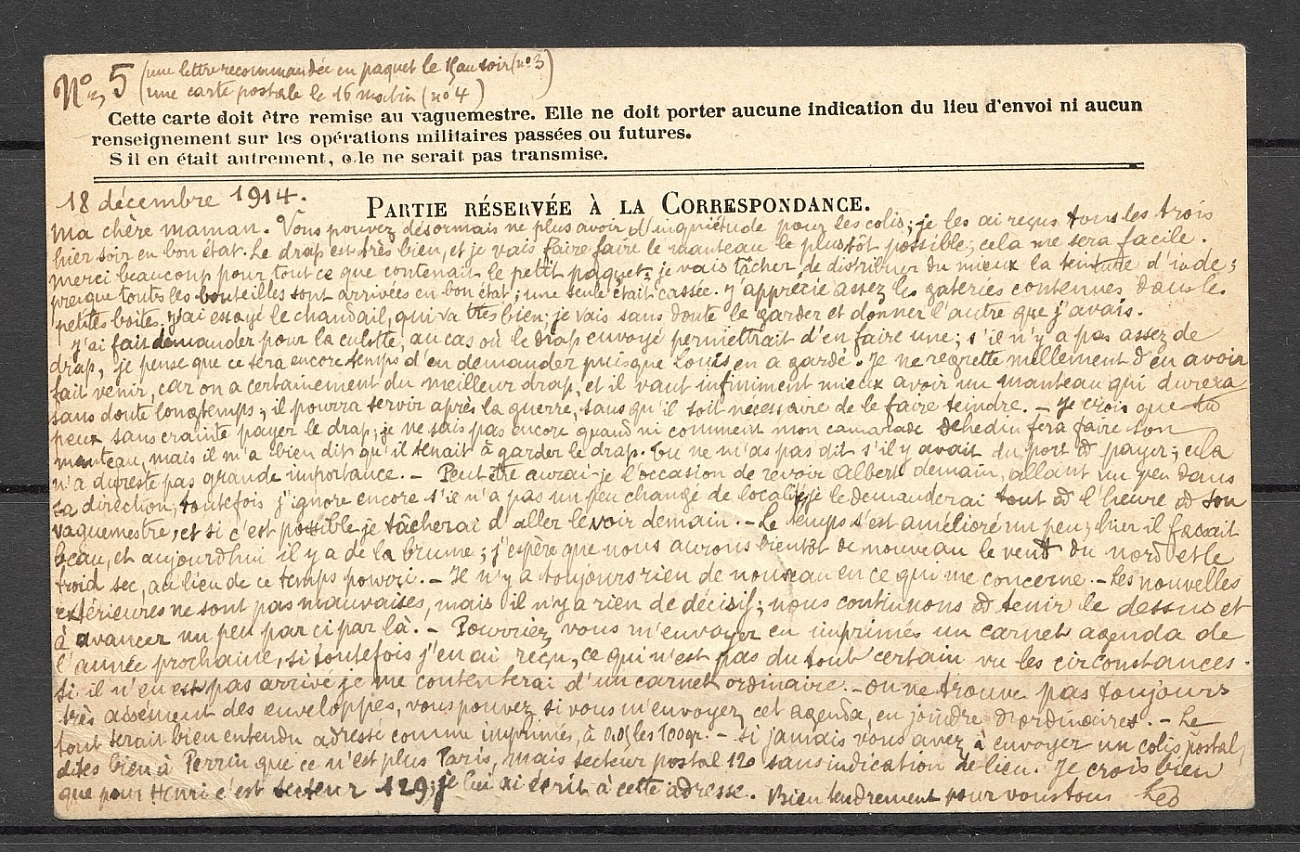 No 5 (une lettre recommandée en paquet le 15 au soir (no 3)
(une carte postale le 16 matin (no 4)
Cette carte doit être remise au vaguemestre. Elle ne doit porter aucune indication du lieu d'envoi ni aucun
renseignement sur les opérations militaires passées ou futures.
S'il en était autrement, elle ne serait pas transmise.
18 décembre 1914.
PARTIE RÉSERVÉE À LA CORRESPONDANCE.
Ma chère maman. Vous pouvez désormais ne plus avoir d'inquiétude pour les colis; je les ai reçus tous les trois
hier soir en bon état. Le drap est très bien, et je vais faire faire le manteau le plus tôt possible; cela me sera facile.
Merci beaucoup pour tout ce que contenait le petit paquet; je vais tâcher de distribuer du mieux la teinture d'iode;
presque toutes les bouteilles sont arrivées en bon état; une seule était cassée. J'apprécie assez les gateries contenues dans les
petites boites. J'ai essayé le chandail, qui va très bien; je vais sans doute le garder et donner l'autre que j'avais.
J'ai fait demander pour la culotte, au cas où le drap envoyé permettrait d'en faire une; s'il n'y a pas assez de
drap, je pense que ce sera encore temps d'en demander puisque Louis en a gardé. Je ne regrette nullement d'en avoir
fait venir, car on a certainement du meilleur drap, et il vaut infiniment mieux avoir un manteau qui durera
sans doute longtemps; il pourra servir après la guerre, sans qu'il soit nécessaire de le faire teindre. - Je crois que tu
peux sans crainte payer le drap; je ne sais pas encore quand ni comment mon camarade Dehedin fera faire son
manteau, mais il m'a bien dit qu'il tenait à garder le drap. Tu ne m'as pas dit s'il y avait du port à payer; cela
n'a du reste pas grande importance. - Peut être aurai-je l'occasion de revoir Albert demain, allant un peu dans
sa direction; toutefois j'ignore encore s'il n'a pas un peu changé de localité; je le demanderai tout à l'heure à son
vaguemestre, et si c'est possible je tâcherai d'aller le voir demain. - Le temps s'est amélioré un peu; hier il faisait
beau, et aujourd'hui il y a de la brume; j'espère que nous aurons bientôt de nouveau le vent du nord et le
froid sec, au lieu de ce temps pourri. - Il n'y a toujours rien de nouveau en ce qui me concerne. - Les nouvelles
extérieures ne sont pas mauvaises, mais il n'y a rien de décisif; nous continuons à tenir le dessus et
à avancer un peu par ci par là. - Pourriez vous m'envoyer en imprimés un carnet agenda de
l'année prochaine, si toutefois j'en ai reçu, ce qui n'est pas du tout certain vu les circonstances.
Si il n'en est pas arrivé je me contenterai d'un carnet ordinaire. - On ne trouve pas toujours
très aisément des enveloppes, vous pouvez si vous m'envoyez cet agenda, en joindre d'ordinaires. - Le
tout serait bien entendu adressé comme imprimés, à les 100 gr. - Si jamais vous avez à envoyer un colis postal,
dites bien à Perrin que ce n'est plus Paris, mais secteur postal 120 sans indication de lieu. Je crois bien
que pour Henri c'est secteur 129; je lui ai écrit à cette adresse. Bien tendrement pour vous tous Léo